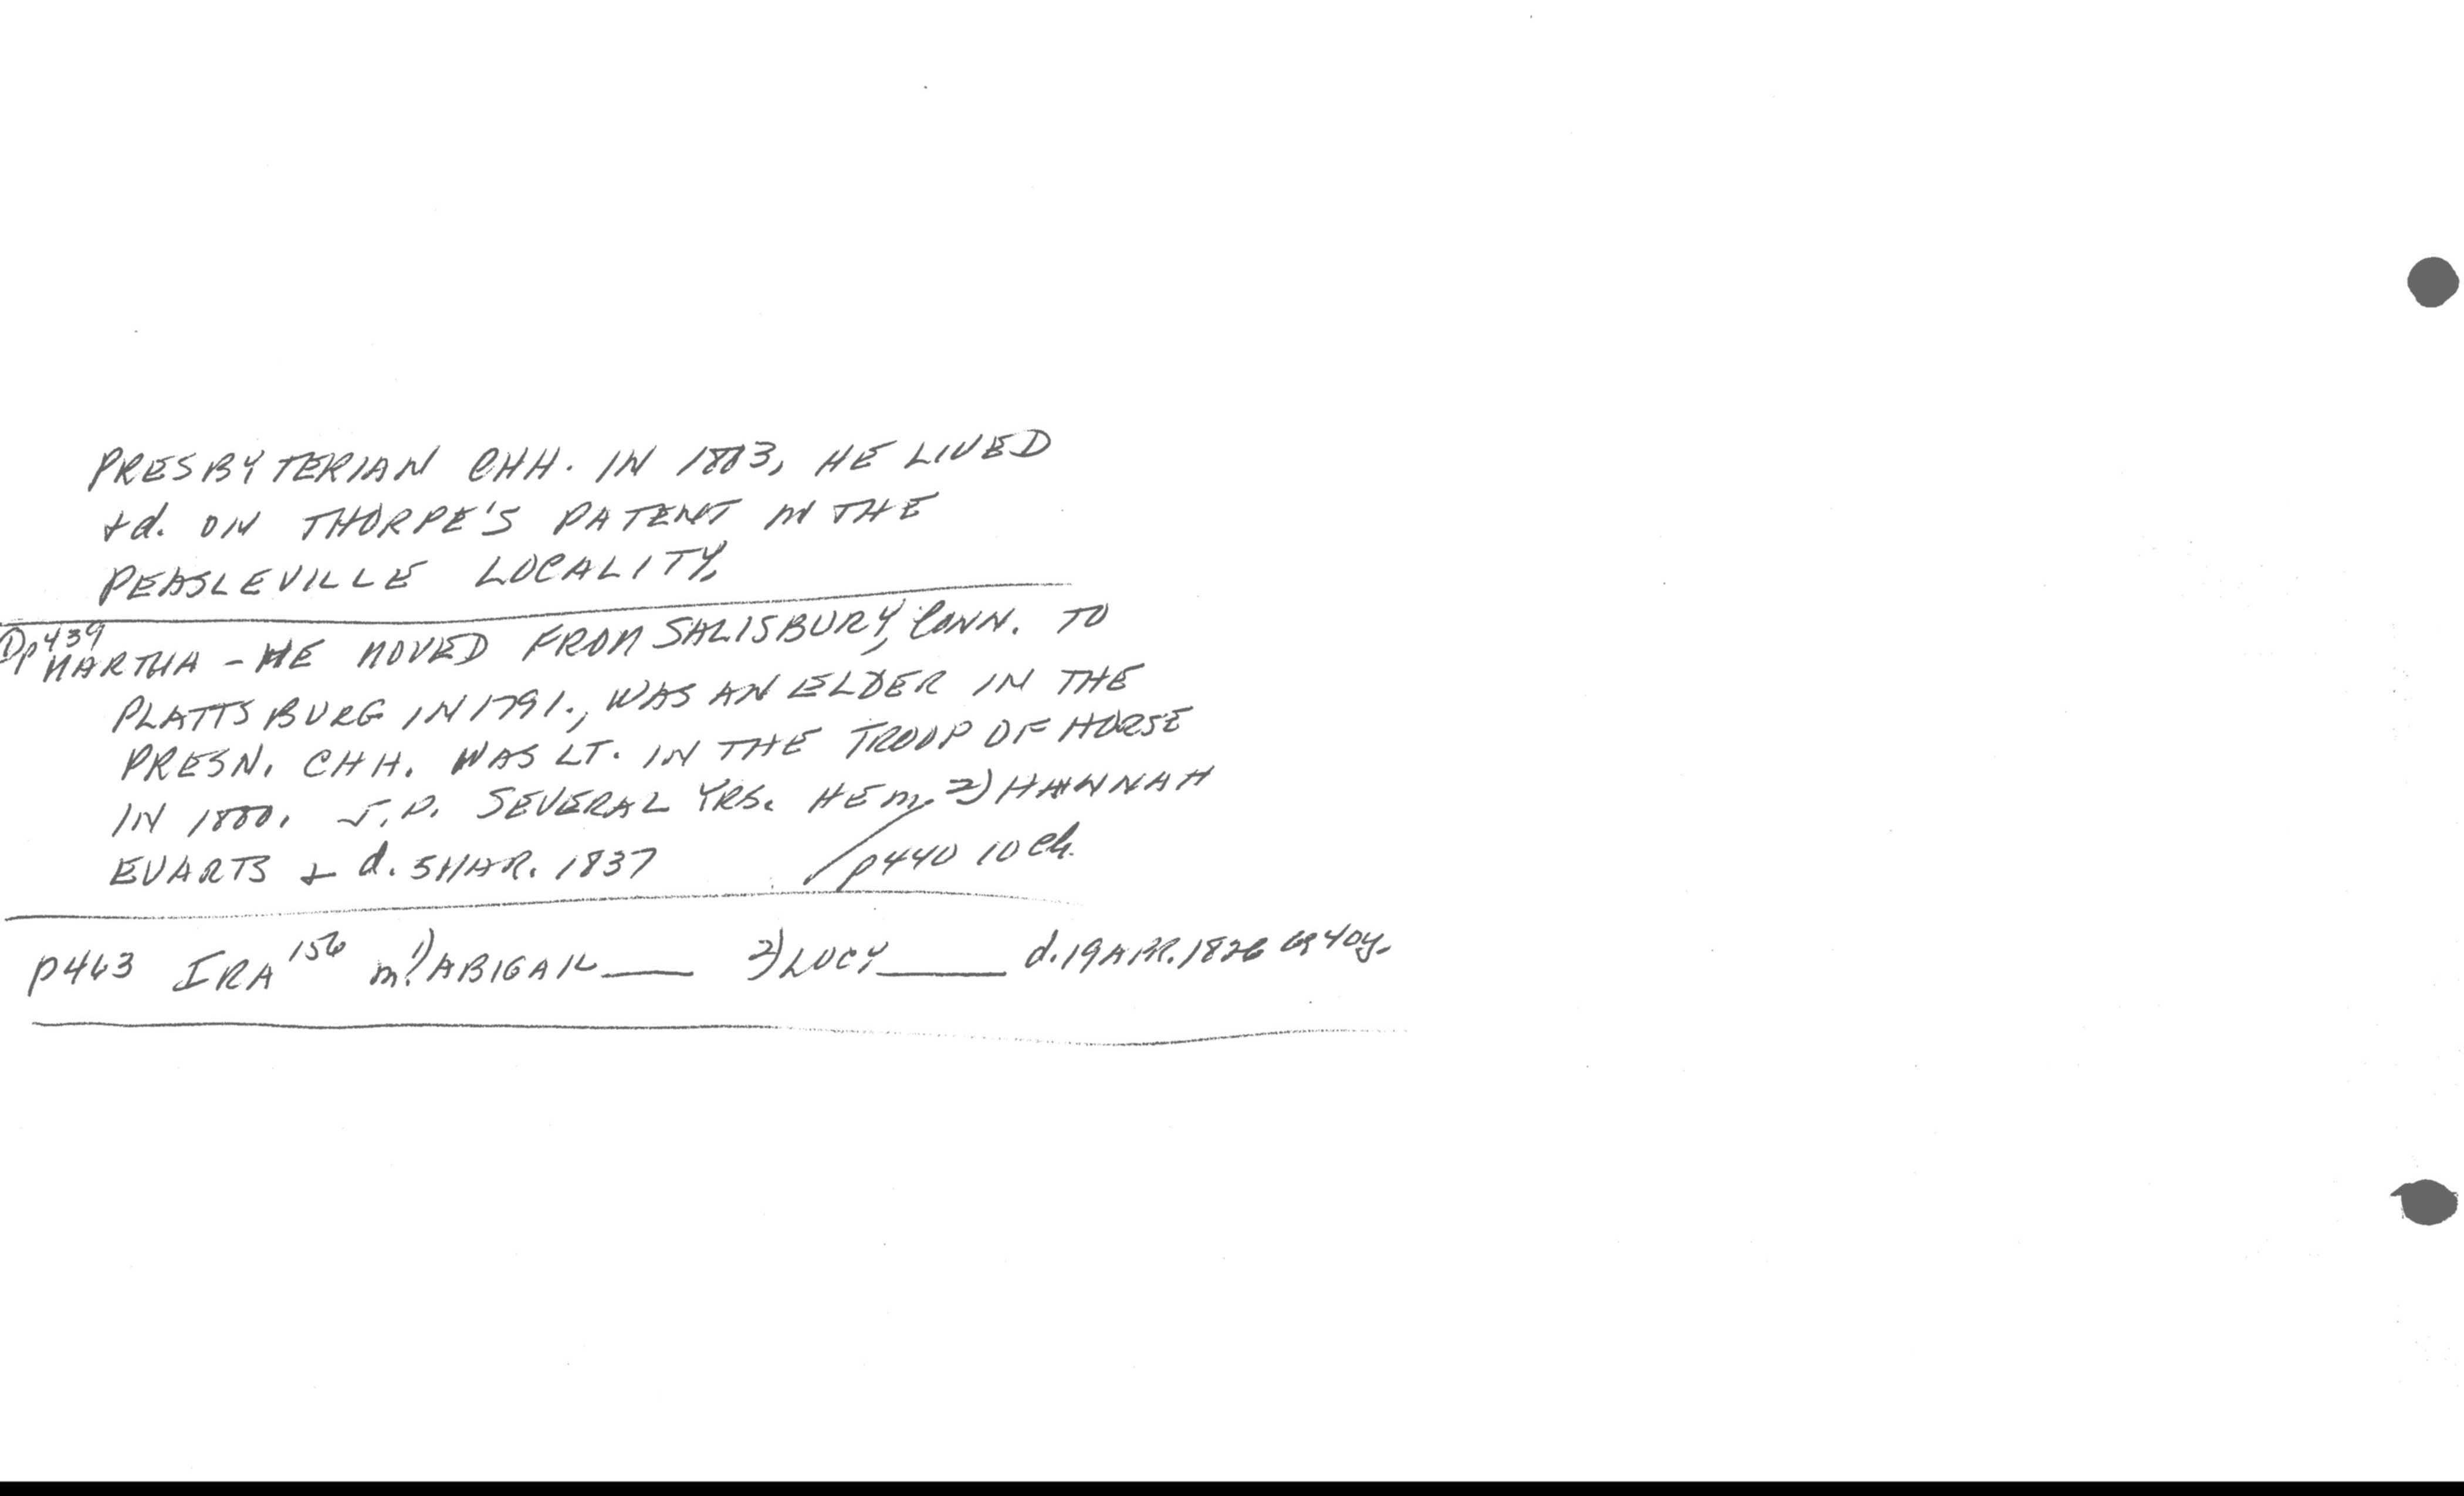 PRESBYTERIAN CHH. IN 1803, HE LIVED
+ d. ON THORPE'S PATENT IN THE
PEASLEVILLE LOCALITY.
① p439
MARTHA - HE MOVED FROM SALISBURY, CONN. TO
PLATTSBURG IN 1791., WAS AN ELDER IN THE
PRESN. CHH. WAS LT. IN THE TROOP OF HORSE
IN 1800. J.P. SEVERAL YRS. HE m. 2) HANNAH
EVARTS + d. 5 MAR. 1837 p440 10 Ch.
p463 IRA 156 m. 1) ABIGAIL ___ 2) LUCY ___ d. 19 APR. 1826 40y.